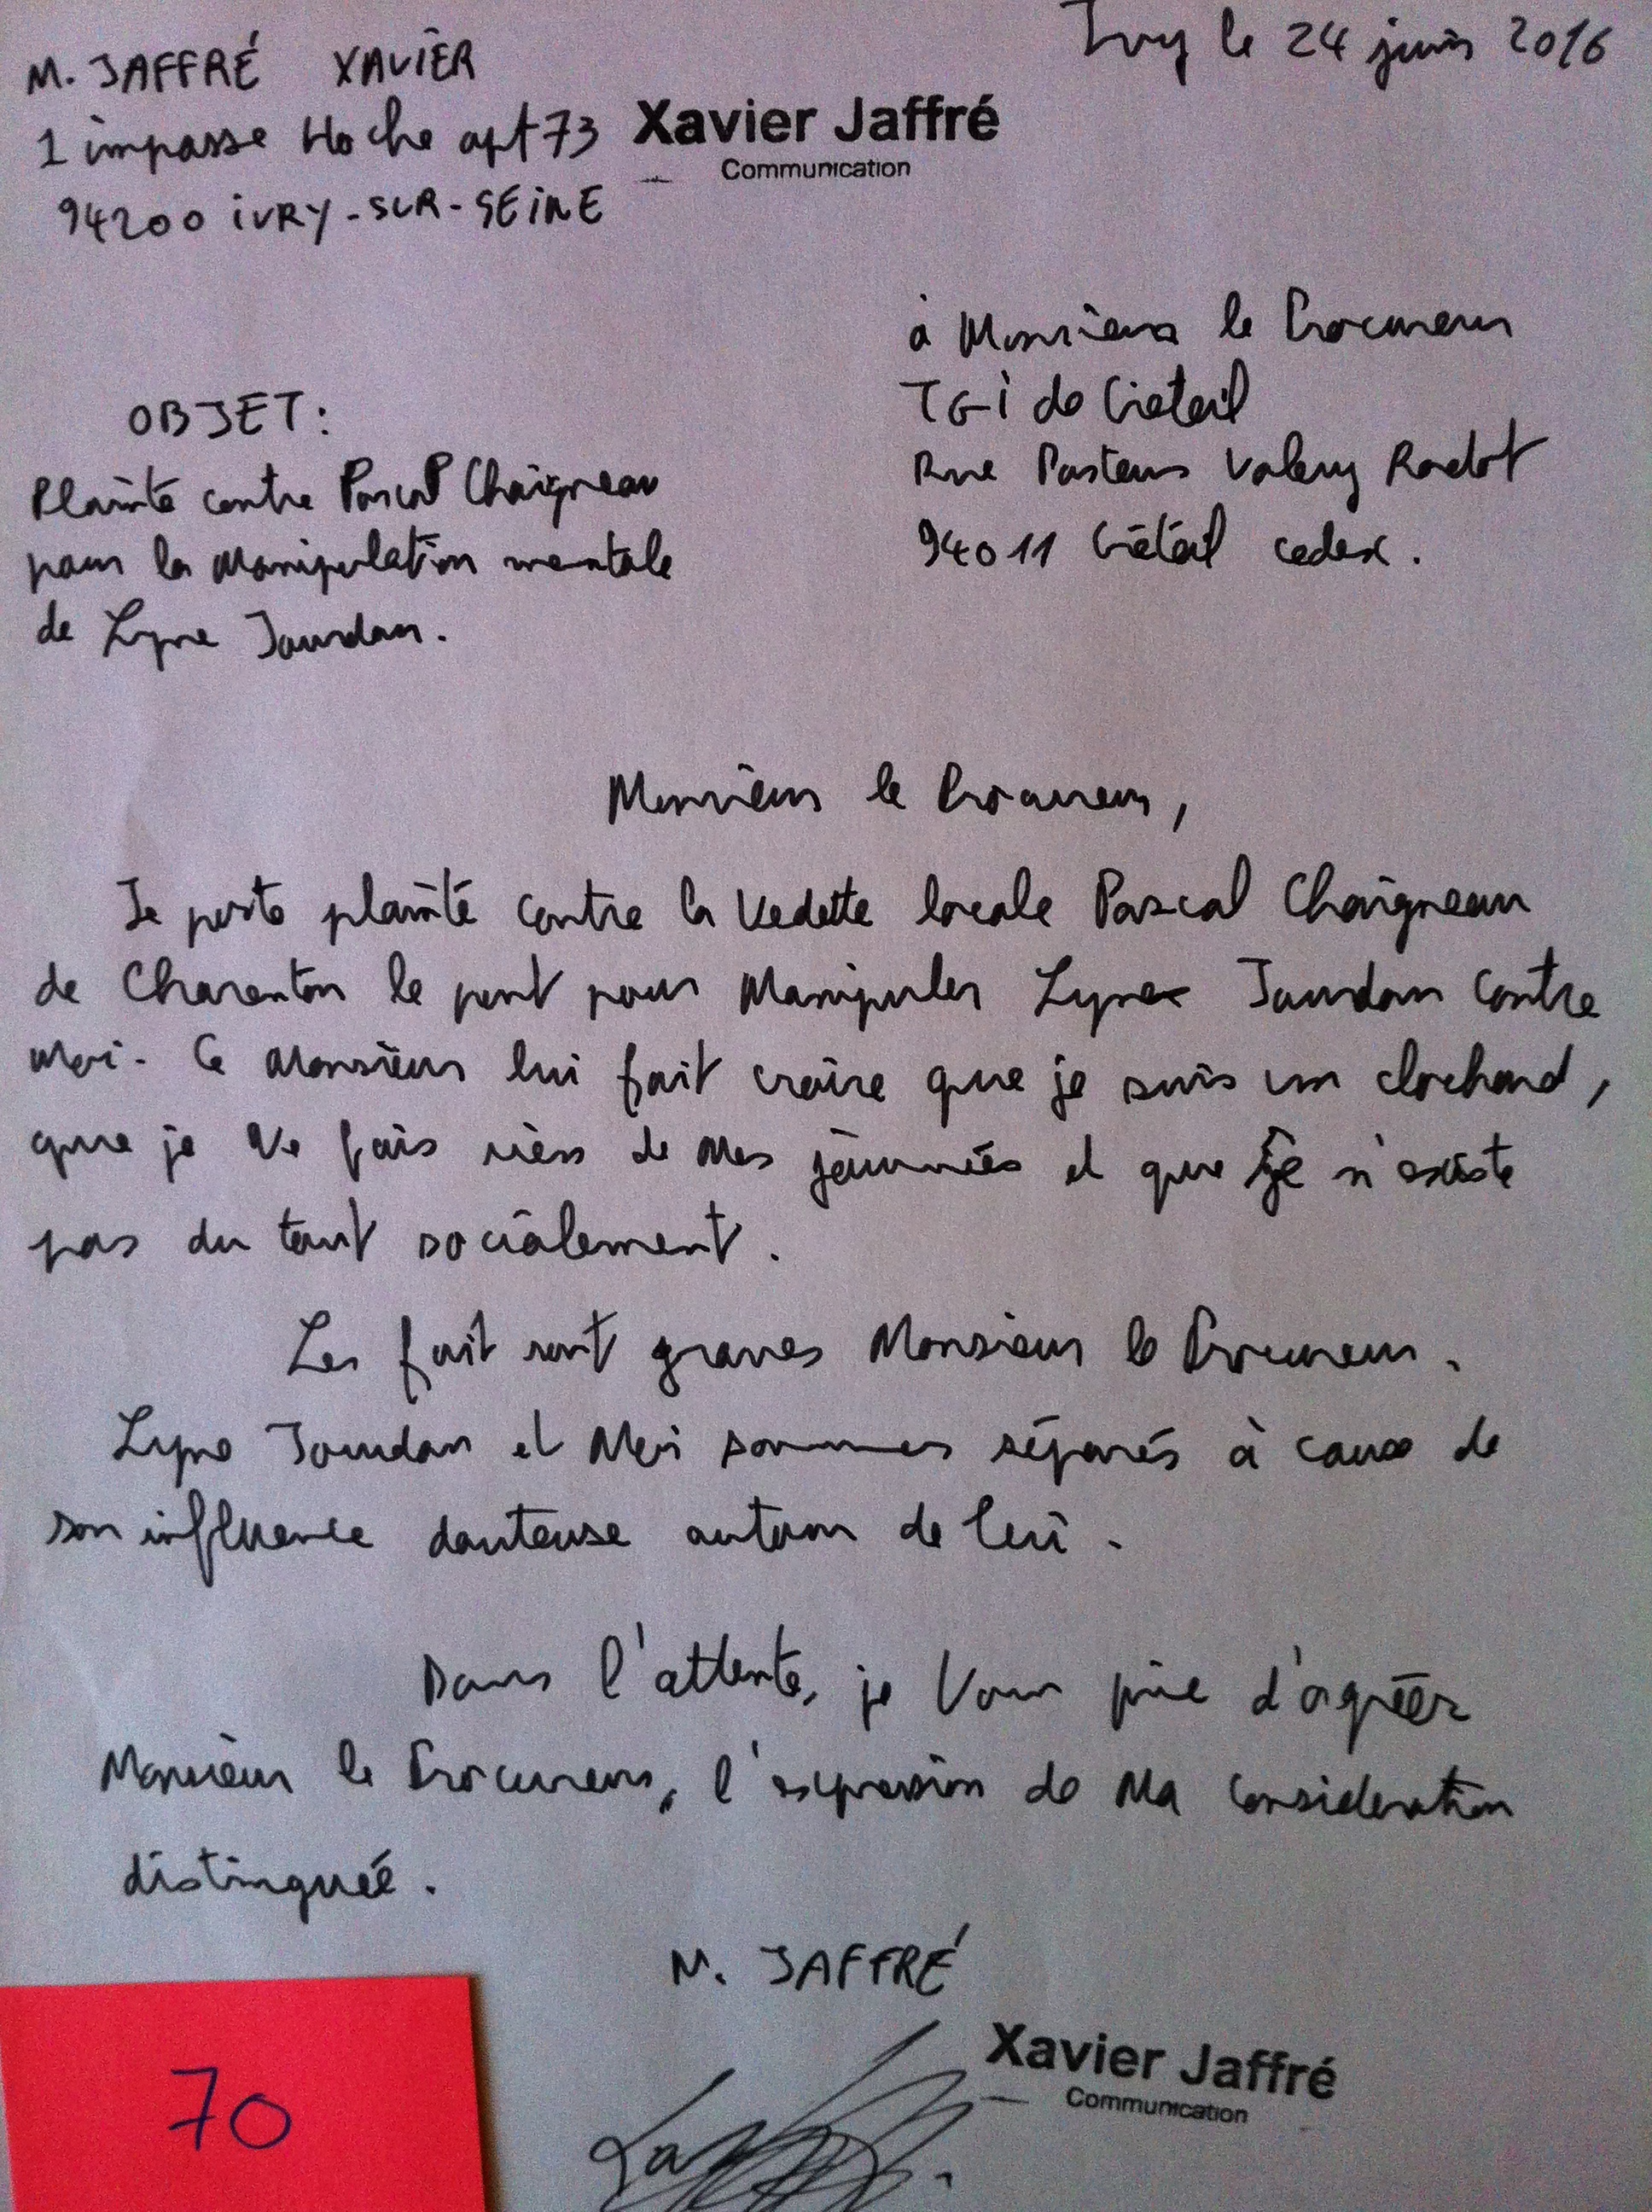 Ivry le 24 juin 2016
M. JAFFRÉ XAVIER
1 impasse Hoche apt 73
94200 IVRY-SUR-SEINE
Xavier Jaffré
Communication
à Monsieur le Procureur
TGI de Créteil
Rue Pasteur Valery Radot
94011 Créteil cedex.
OBJET:
Plainte contre Pascal Chaigneau
pour la Manipulation mentale
de Lyne Jourdan.
Monsieur le Procureur,
Je porte plainte contre la Vedette locale Pascal Chaigneau
de Charenton le pont pour Manipuler Lyne Jourdan contre
Moi. Ce Monsieur lui fait croire que je suis un clochard,
que je Ne fais rien de Mes journées et que je n'existe
pas du tout socialement.
Les fait sont graves Monsieur le Procureur.
Lyne Jourdan et Moi sommes séparés à cause de
son influence douteuse autour de lui.
Dans l'attente, je Vous prie d'agréer
Monsieur le Procureur, l'expression de Ma Consideration
distinguée.
M. JAFFRÉ
Xavier Jaffré
Communication
70